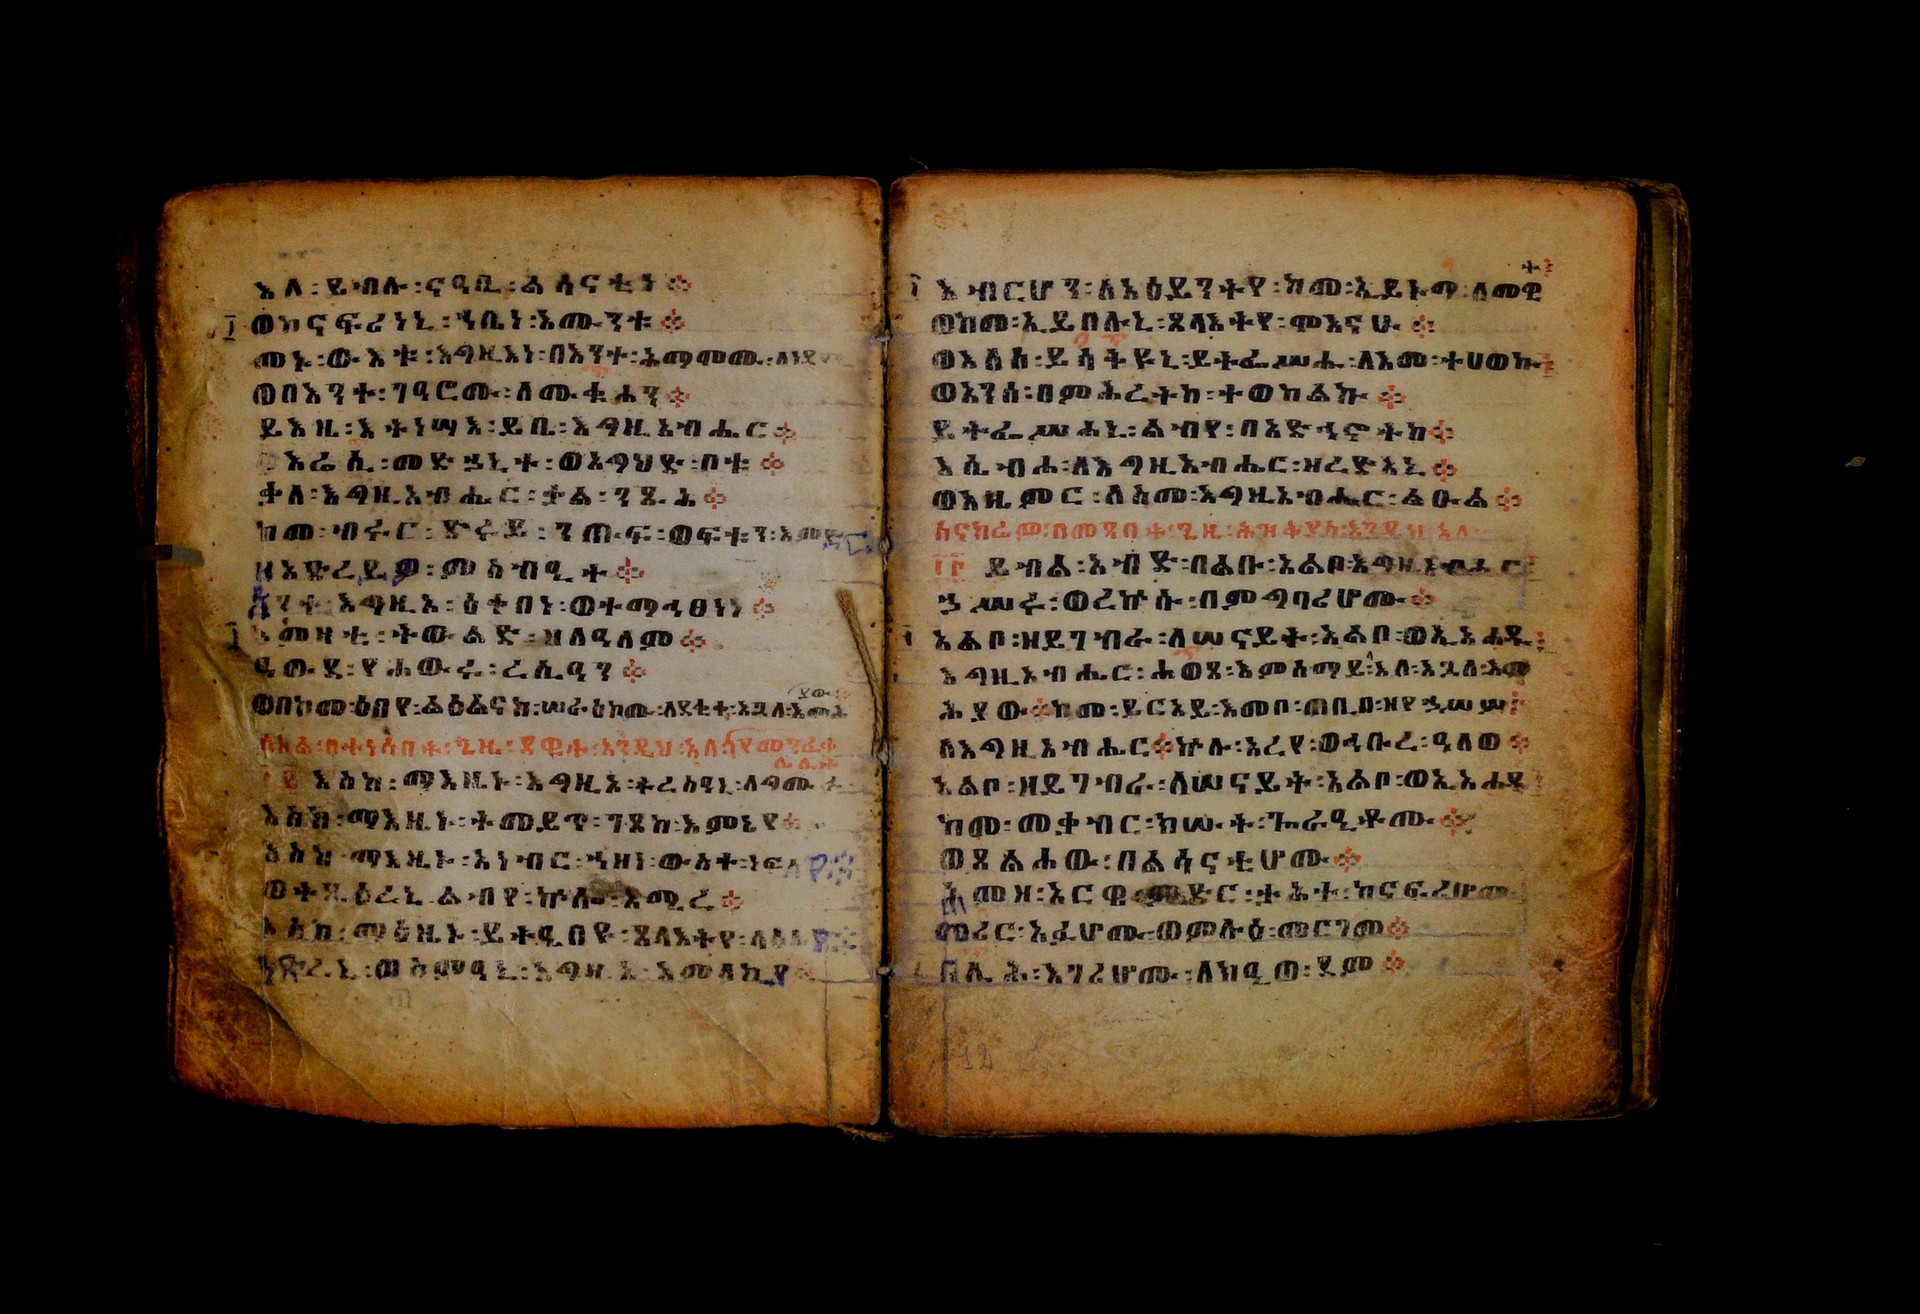 እለ፡ይብሉ፡ናዓቢ፡ልሳናቲነ።
ወከናፍሪነኒ፡ኀቤነ፡እሙንቱ።
መኑ፡ውእቱ፡እግዚእነ፡
ወበእንተ፡ገዓሮሙ፡ለሙቁሓን።
ይእዜ፡እትነሣእ፡ይቤ፡እግዚአብሔር።
እሬሲ፡መድኃኒተ፡ወእግህድ፡ቦቱ።
ቃለ፡እግዚአብሔር፡ቃል፡ንጹሕ።
ከመ፡ብሩር፡ጽሩይ፡ንጡፍ፡ወፍቱን፡
ዘአጽረይዎ፡ምስብዒተ።
አንተ፡እግዚኦ፡ዕቀበነ፡ወተማኅፀነነ።
እመዛቲ፡ትውልድ፡ዘለዓለም።
ዓውደ፡የሐውሩ፡ረሲዓን።
ወበከመ፡ዕበየ፡ልዕልናከ፡ሠራዕኮሙ፡ለደቂቀ፡እጓለ፡እመሕያው።
እስከ፡ማእዜኑ፡እግዚኦ፡ትረስዐኒ፡ለግሙራ
እስከ፡ማእዜኑ፡ትመይጥ፡ገጸከ፡እምኔየ።
እስከ፡ማእዜኑ፡አነብር፡ኀዘነ፡ውስተ፡ነፍስየ።
ወትጼዕረኒ፡ልብየ፡ኵሎ፡አሚረ።
እስከ፡ማዕዜኑ፡ይትዔበዩ፡ጸላእትየ፡ላዕሌየ።
ነጽረኒ፡ወስምዓኒ፡እግዚኦ፡አምላኪየ
አብርሆን፡ለአዕይንትየ፡ከመ፡ኢይኑማ፡ለመዊት
ወከመ፡ኢይበሉኒ፡ጸላእትየ፡ሞእናሁ።
ወእለሰ፡ይሳትዩኒ፡ይትፌሥሑ፡ለእመ፡ተሀወኩ።
ወአንሰ፡በምሕረትከ፡ተወከልኩ።
ይትፌሥሐኒ፡ልብየ፡በአድኅኖትከ።
እሴብሖ፡ለእግዚአብሔር፡ዘረድአኒ።
ወእዜምር፡ለስመ፡እግዚአብሔር፡ልዑል።
ይብል፡አብድ፡በልቡ፡አልቦ፡እግዚአብሔር
ኃሥሩ፡ወረኵሱ፡በምግባሪሆሙ።
አልቦ፡ዘይገብራ፡ለሠናይት፡አልቦ፡ወኢአሐዱ።
እግዚአብሔር፡ሐወጸ፡እምሰማይ፡እለ፡እጓለ፡እመ
ሕያው።ከመ፡ይርአይ፡እመቦ፡ጠቢብ፡ዘየኃሥሦ
ለእግዚአብሔር።ኵሉ፡ዐረየ፡ወኅቡረ፡ዓለወ።
አልቦ፡ዘይገብራ፡ለሠናይት፡አልቦ፡ወኢአሐዱ
ከመ፡መቃብር፡ክሡት፡ጐራዒቶሙ።
ወጸልሐው፡በልሳናቲሆሙ።
ሕምዘ፡አርዌ፡ምድር፡ታሕተ፡ከናፍሪሆሙ
መሪር፡አፉሆሙ፡ወምሉዕ፡መርገመ።
በሊሕ፡እገሪሆሙ፡ለክዒወ፡ደም።
12